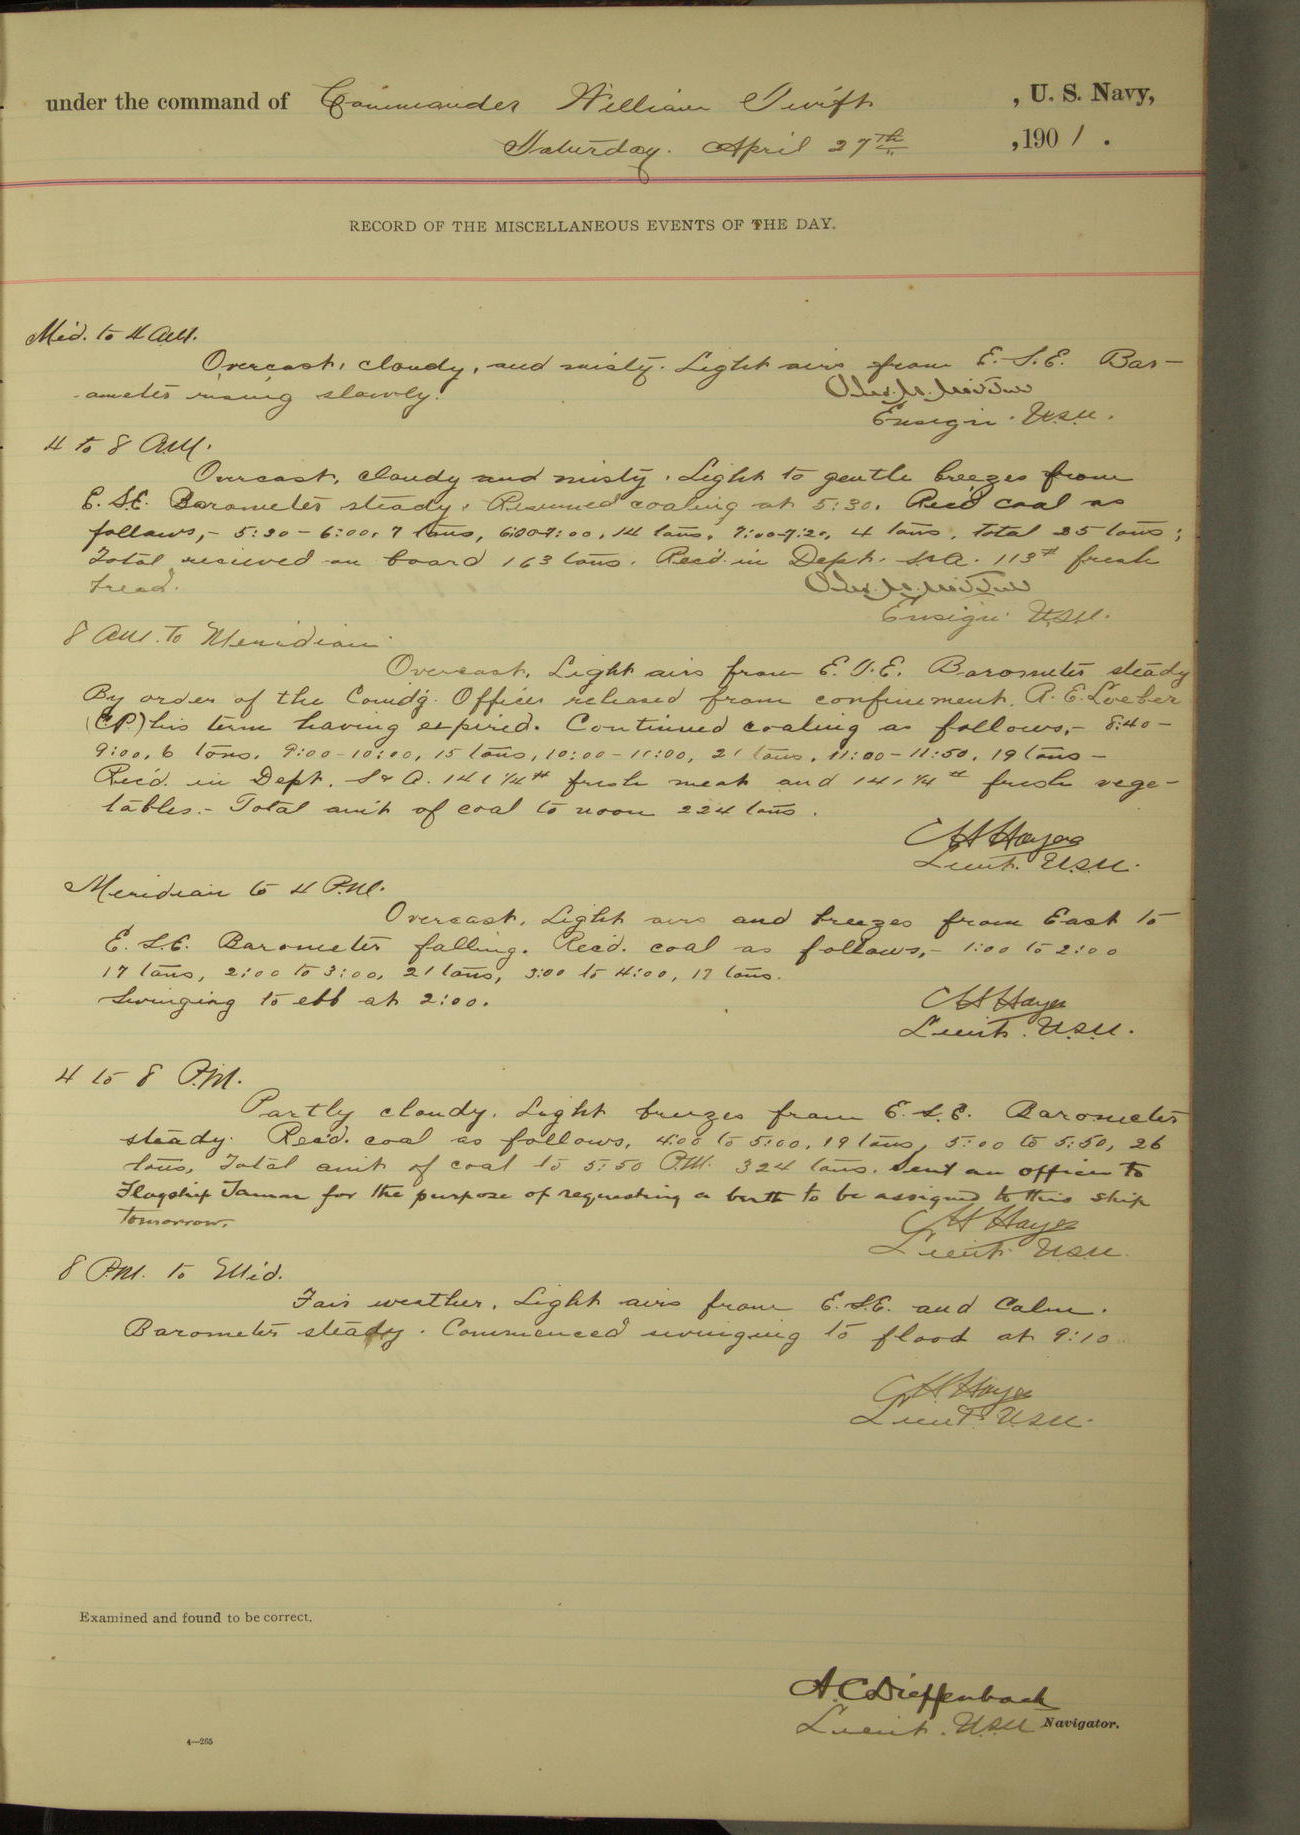 under the command of Commander William Swift, U. S. Navy,
Saturday. April 27th, 1901.
RECORD OF THE MISCELLANEOUS EVENTS OF THE DAY.
Mid. to 4 A.M.
Overcast, cloudy, and misty. Light airs from E.S.E. Bar-
ometer rising slowly.
Ensign. U.S.N.
4 to 8 A.M.
Overcast, cloudy and misty. Light to gentle breezes from
E.S.E. Barometer steady. Resumed coaling at 5:30. Rec'd coal as
follows,- 5:30-6:00, 7 tons, 6:00-7:00, 14 tons, 7:00-7:20, 4 tons, total 25 tons;
Total recieved on board 163 tons. Rec'd in Dept. S&A. 113# fresh
bread.
Ensign U.S.N.
8 A.M. to Meridian
Overcast, Light airs from E.S.E. Barometer steady
By order of the Comd'g. Officer released from confinement, A. E. Loeber
(C.P.) his term having expired. Continued coaling as follows,- 8:40-
9:00, 6 tons, 9:00-10:00, 15 tons, 10:00-11:00, 21 tons, 11:00-11:50, 19 tons-
Rec'd. in Dept. S & A. 141 1/4# fresh meat and 141 1/4# fresh vege-
tables.- Total amt of coal to noon 224 tons.
C H Hayes
Lieut. U.S.N.
Meridian to 4 P.M.
Overcast, Light airs and breezes from East to
E.S.E. Barometer falling. Rec'd. coal as follows,- 1:00 to 2:00
17 tons, 2:00 to 3:00, 21 tons, 3:00 to 4:00, 17 tons.
Swinging to ebb at 2:00.
C H Hayes
Lieut. U.S.N.
4 to 8 P.M.
Partly cloudy. Light breezes from E.S.E. Barometer
steady. Rec'd. coal as follows, 4:00 to 5:00, 19 tons, 5:00 to 5:50, 26
tons, Total amt of coal to 5:50 P.M. 324 tons. Sent an officer to
Flagship for the purpose of requesting a berth to be assigned to this ship
tomorrow.
C H Hayes
Lieut. U.S.N.
8 P.M. to Mid.
Fair weather, Light airs from E.S.E. and Calm.
Barometer steady. Commenced swinging to flood at 9:10
C H Hayes
Lieut. U.S.N.
Examined and found to be correct.
A. C. Dieffenbach
Lieut. U.S.N. Navigator.
4—265